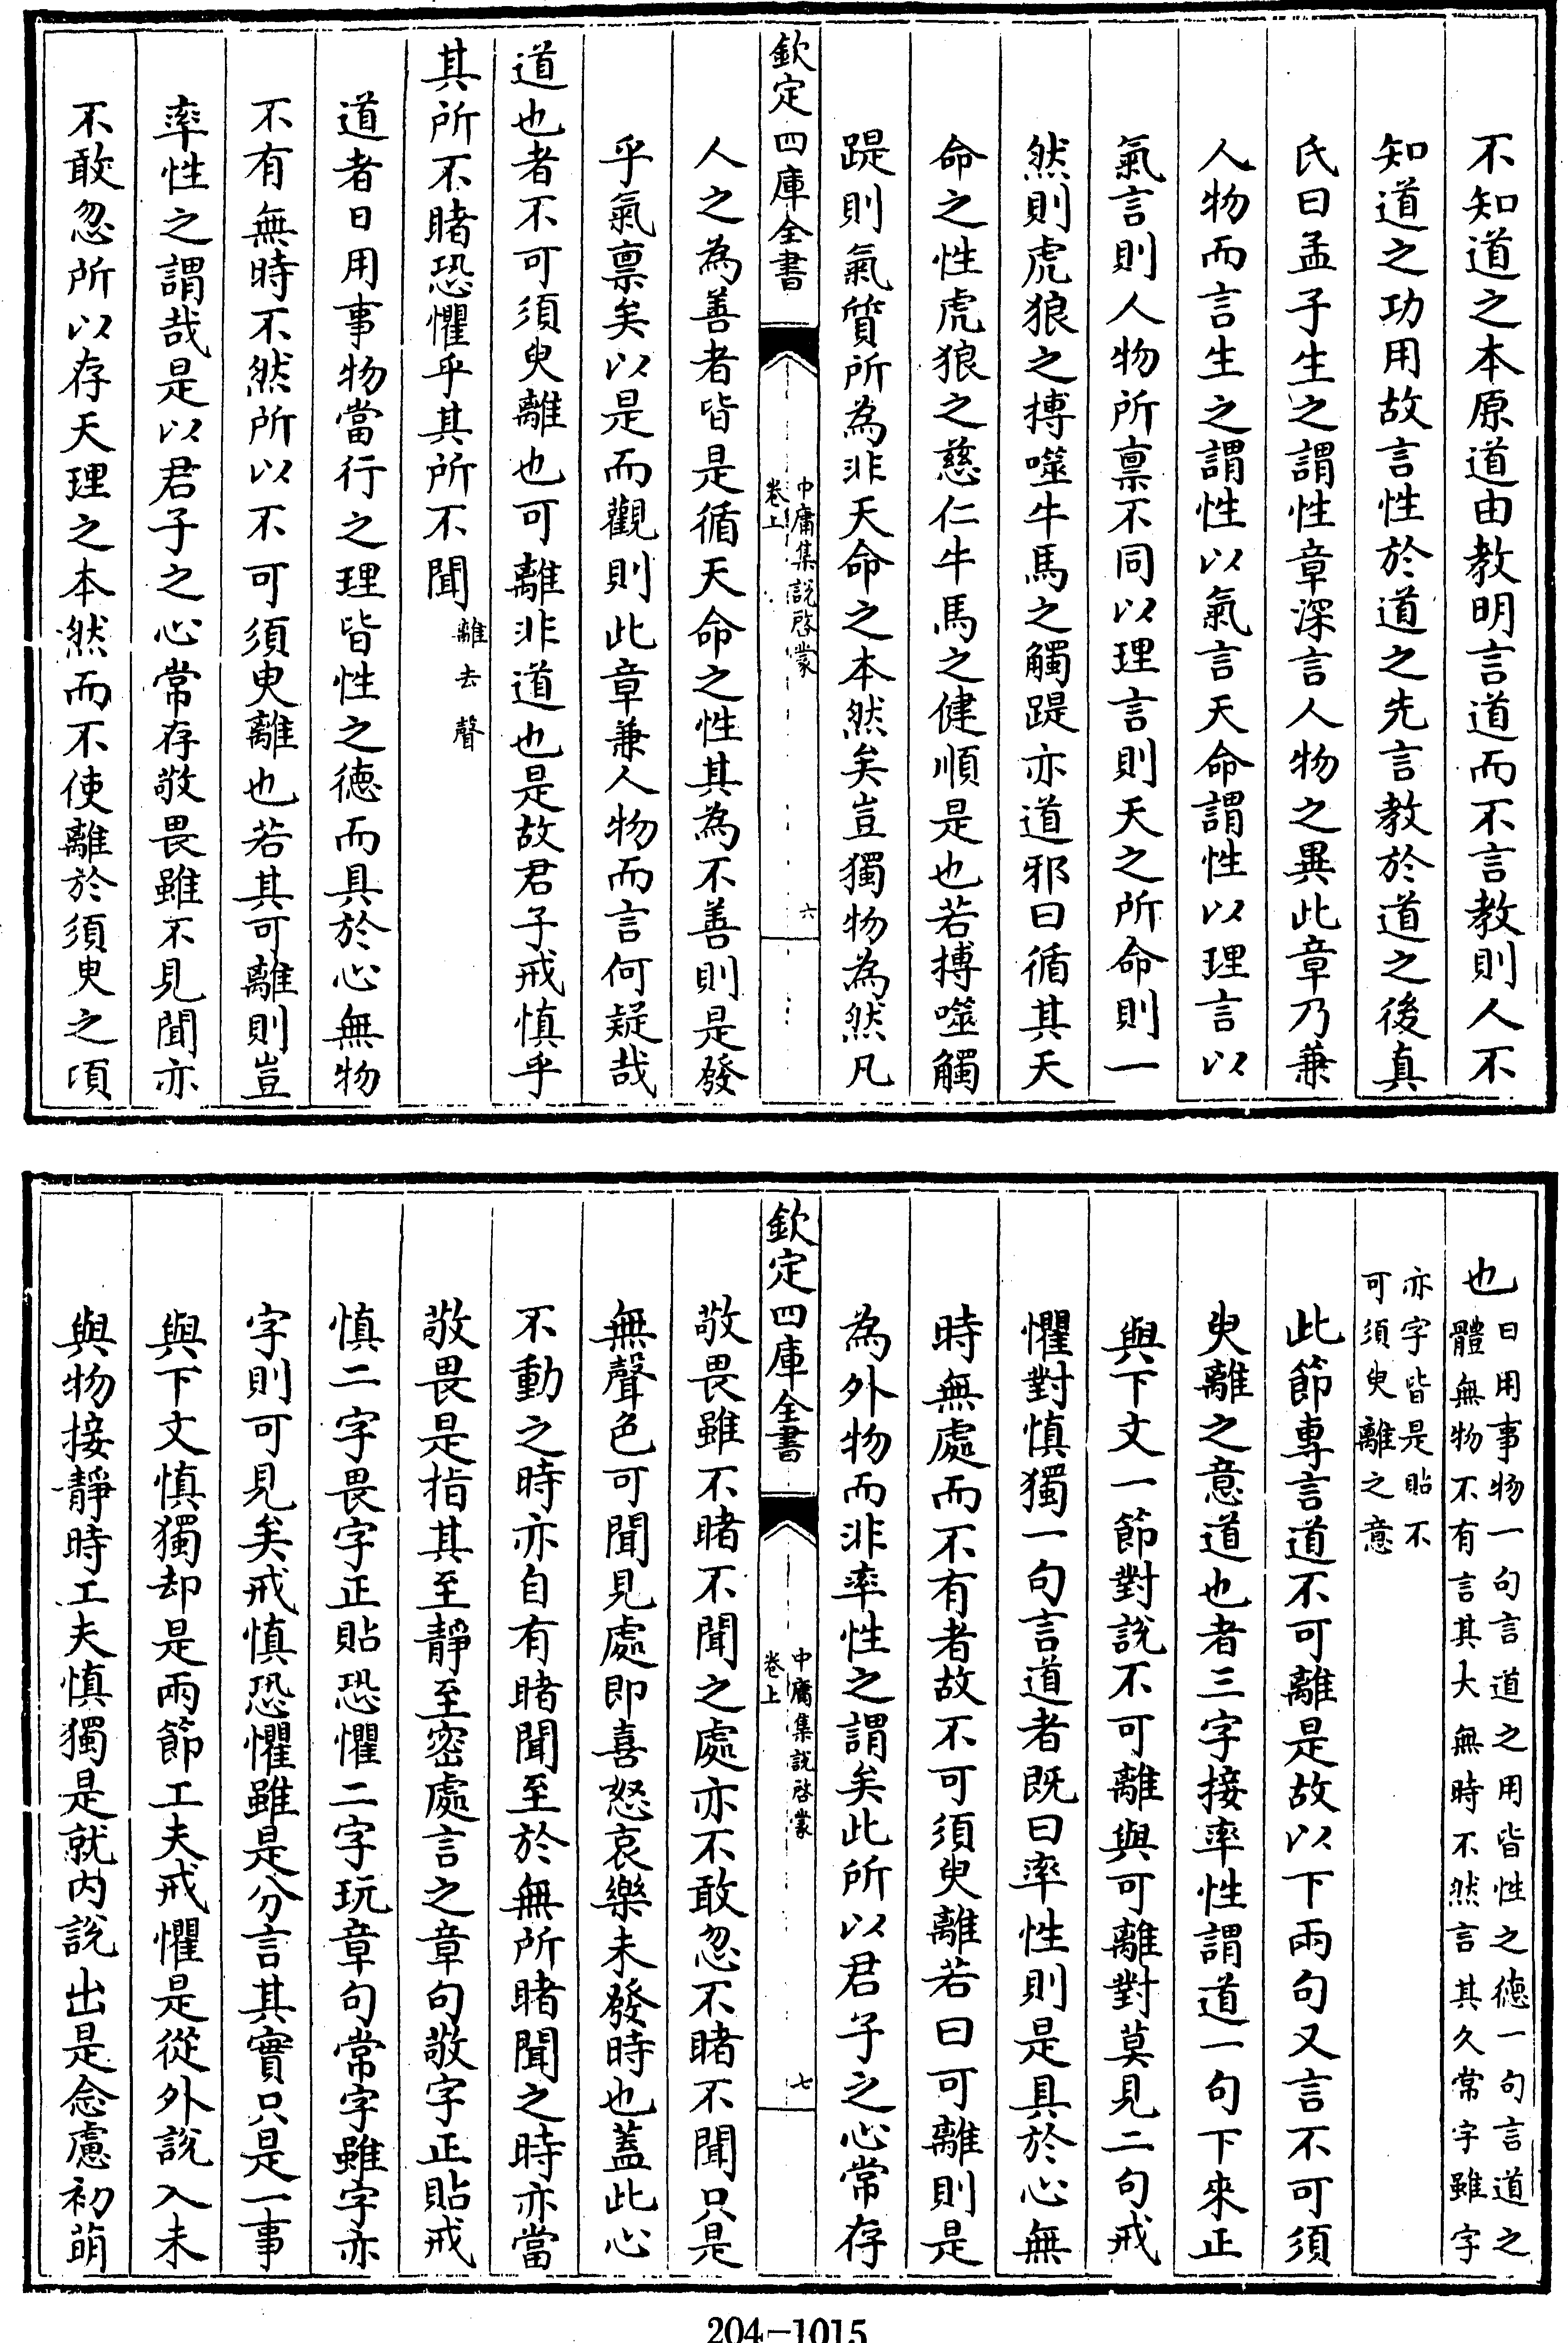 不知道之本原道由教明言道而不言教則人不
知道之功用故言性於道之先言教於道之後真
氏曰孟子生之謂性章深言人物之異此章乃兼
人物而言生之謂性以氣言天命謂性以理言以
氣言則人物所禀不同以理言則天之所命則一
然則虎狼之搏噬牛馬之觸踶亦道邪曰循其天
命之性虎狼之慈仁牛馬之健順是也若搏噬觸
踶則氣質所為非天命之本然矣豈獨物為然凡
欽定四庫全書
中庸集説啓蒙
卷上
六
人之為善者皆是循天命之性其為不善則是發
乎氣禀矣以是而觀則此章兼人物而言何疑哉
道也者不可須臾離也可離非道也是故君子戒慎乎
其所不睹恐懼乎其所不聞離去聲
道者日用事物當行之理皆性之德而具於心無物
不有無時不然所以不可須臾離也若其可離則豈
率性之謂哉是以君子之心常存敬畏雖不見聞亦
不敢忽所以存天理之本然而不使離於須臾之頃
也日用事物一句言道之用皆性之德一句言道之
體無物不有言其大無時不然言其久常字雖字
亦字皆是貼不
可須臾離之意
此節專言道不可離是故以下兩句又言不可須
臾離之意道也者三字接率性謂道一句下來正
與下文一節對說不可離與可離對莫見二句戒
懼對慎獨一句言道者既曰率性則是具於心無
時無處而不有者故不可須臾離若曰可離則是
為外物而非率性之謂矣此所以君子之心常存
欽定四庫全書
中庸集説啓蒙
卷上
七
敬畏雖不睹不聞之處亦不敢忽不睹不聞只是
無聲色可聞見處即喜怒哀樂未發時也蓋此心
不動之時亦自有睹聞至於無所睹聞之時亦當
敬畏是指其至靜至密處言之章句敬字正貼戒
慎二字畏字正貼恐懼二字玩章句常字雖字亦
字則可見矣戒慎恐懼雖是分言其實只是一事
與下文慎獨却是兩節工夫戒懼是從外說入未
與物接靜時工夫慎獨是就内說出是念慮初萌
204-1015